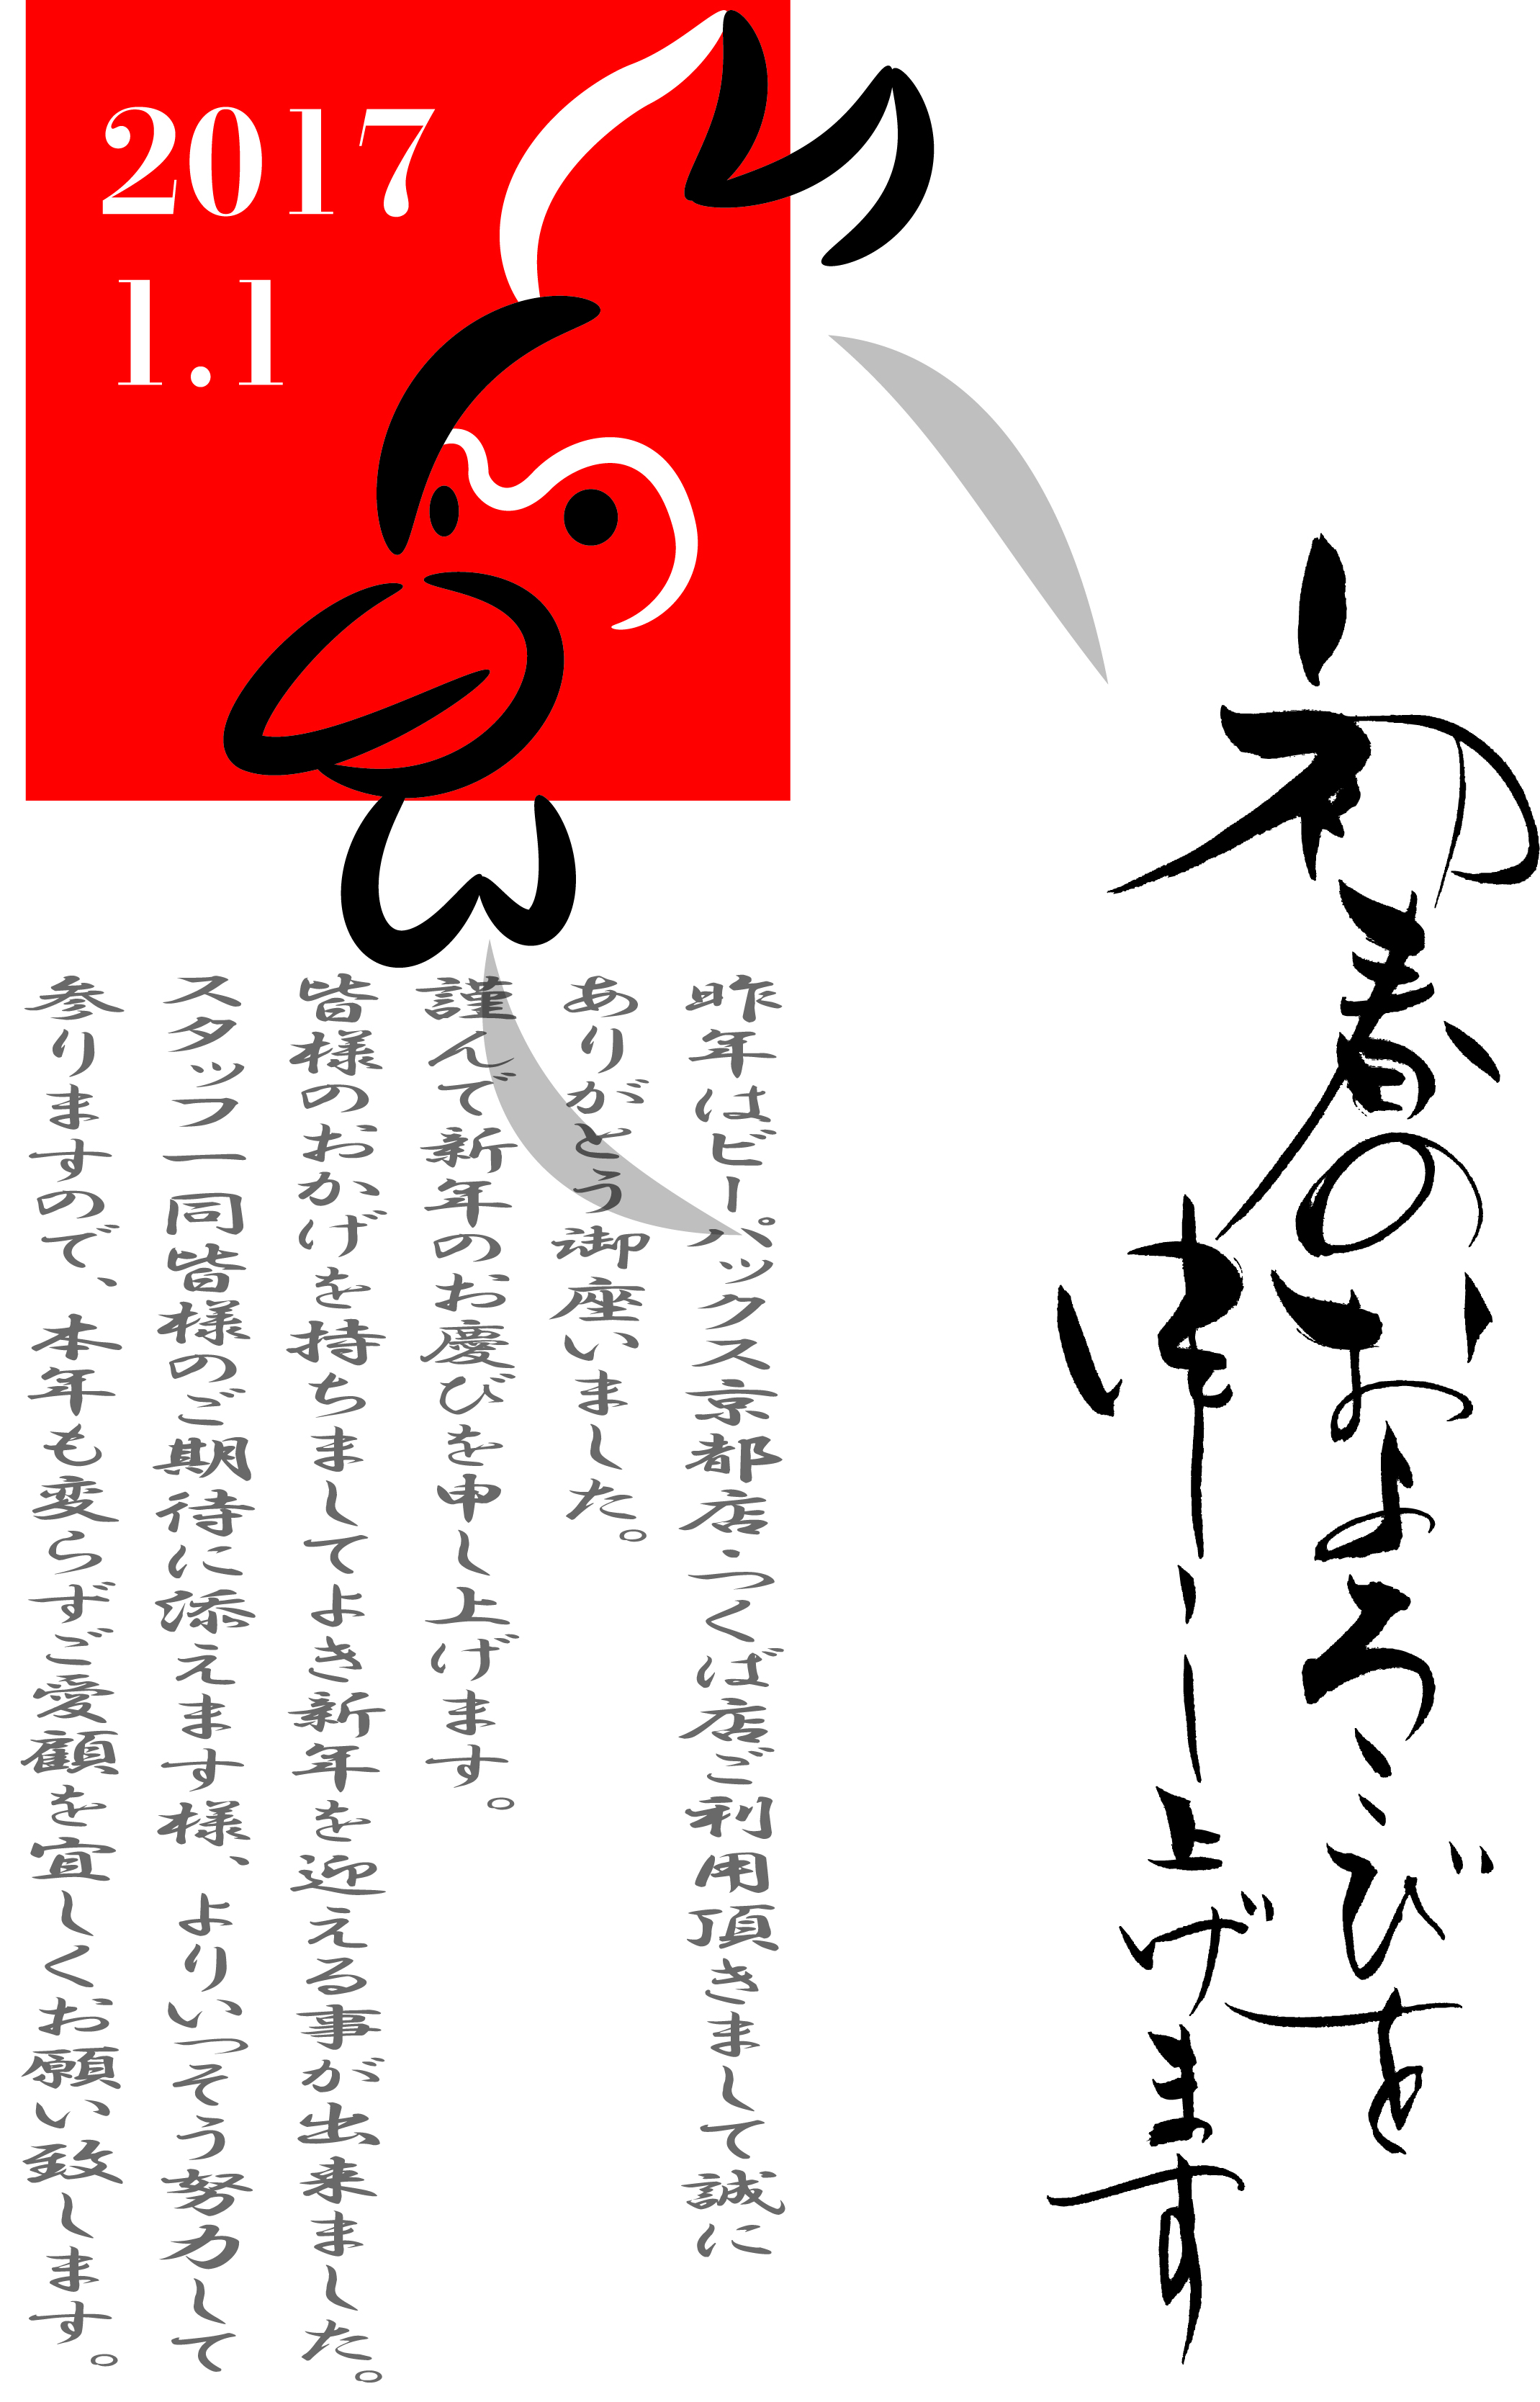 2017
1.1
初春のおよろこびを
申し上げます
昨年はビープックス京都店・つくば店ご利用頂きまして誠に
ありがとう御座いました。
謹んで新年のお慶びを申し上げます。
皆様のおかげを持ちましてよき新年を迎える事が出来ました。
スタッフ一同皆様のご期待に添えます様、よりいっそう努力して
参りますので、本年も変らずご愛顧を宜しくお願い致します。